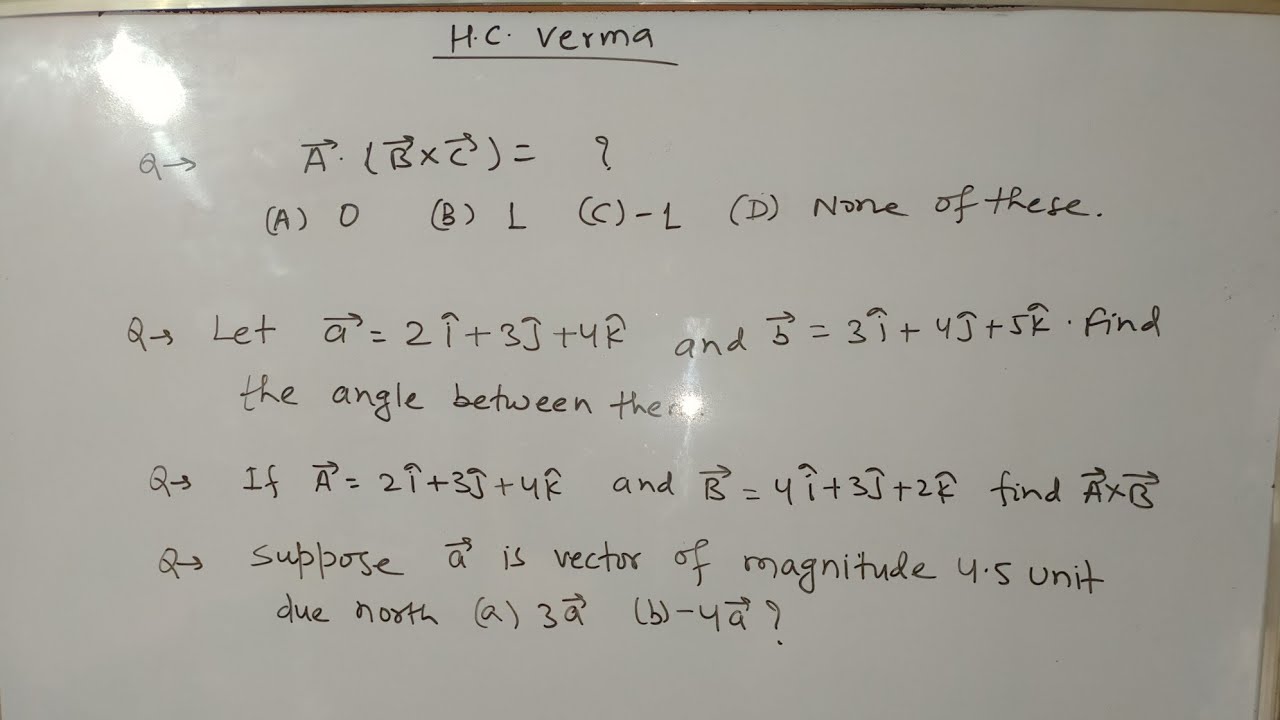 H.C. Verma
Q→ A⃗.(B⃗×C⃗)= ?
(A) 0 (B) 1 (C)-1 (D) None of these.
Q→ Let a⃗=2î+3ĵ+4k̂ and b⃗=3î+4ĵ+5k̂. Find
the angle between
Q→ If A⃗=2î+3ĵ+4k̂ and B⃗=4î+3ĵ+2k̂ find A⃗×B⃗
Q→ Suppose a⃗ is vector of magnitude 4.5 unit
due north (a) 3a⃗ (b)-4a⃗?